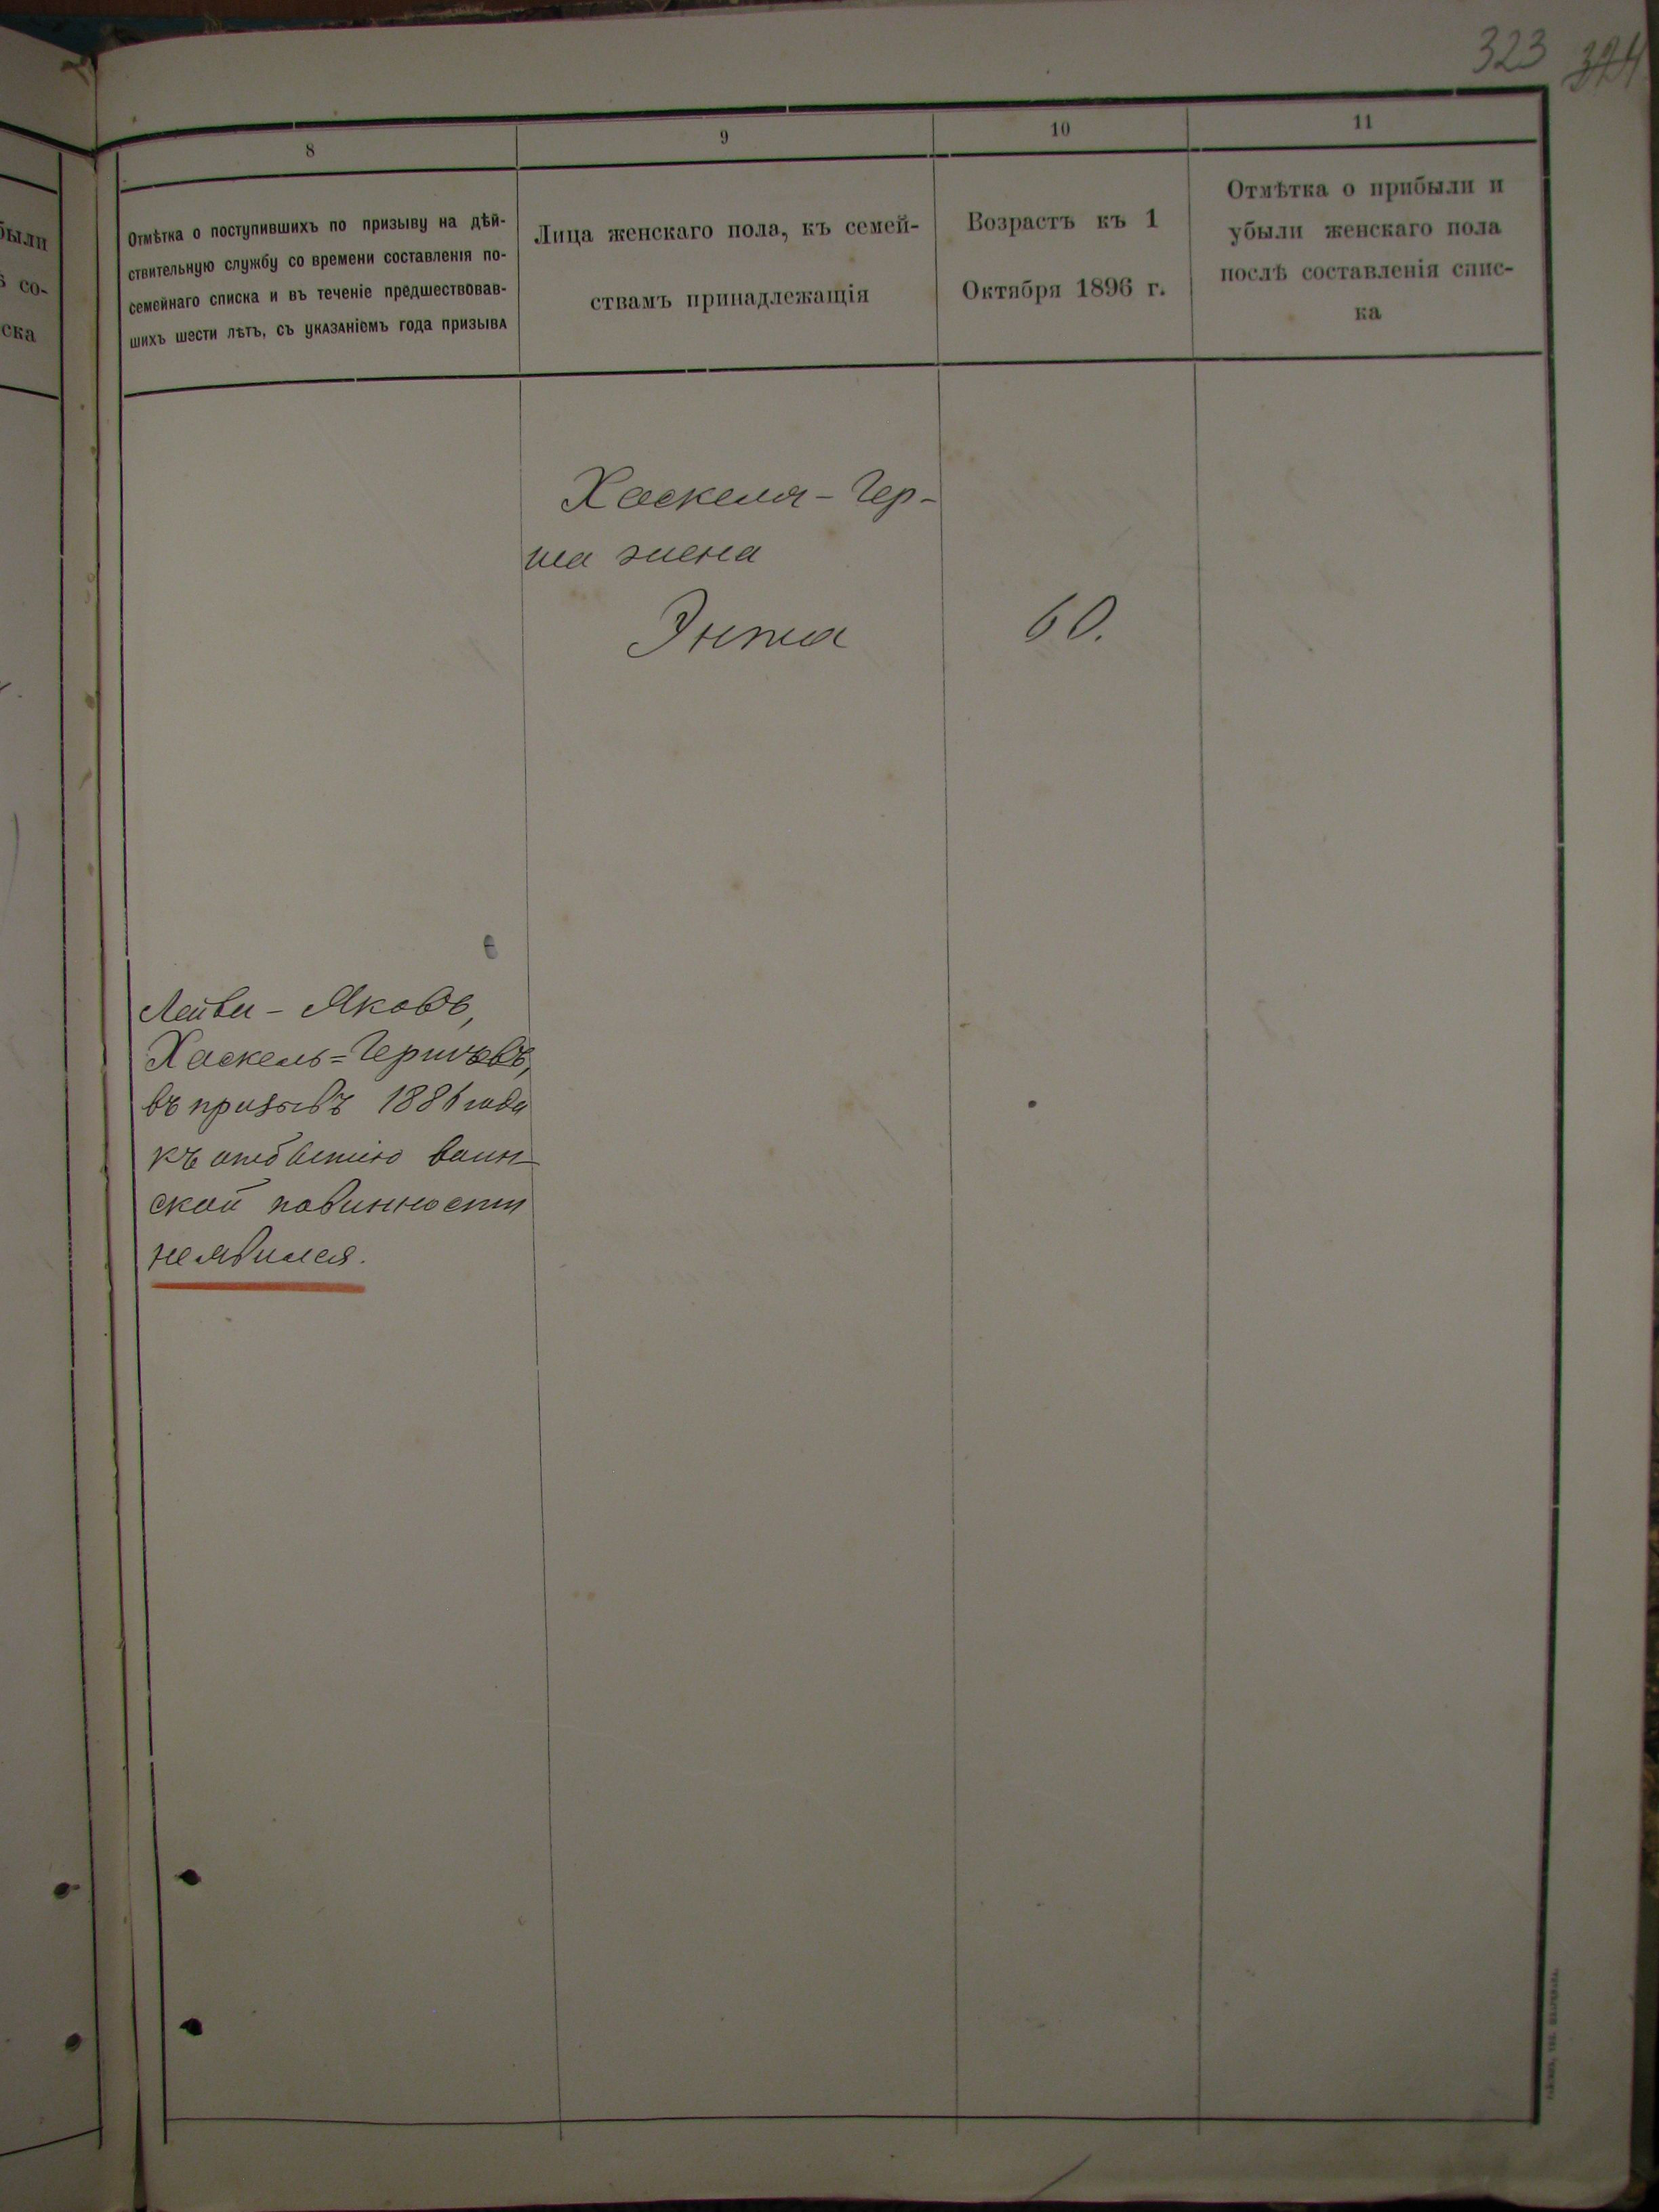 323 324
8
9
10
11
Отмѣтка о поступившихъ по призыву на дѣй-
ствительную службу со времени составленія по-
семейнаго списка и въ теченіе предшествовав-
шихъ шести лѣтъ, съ указаніемъ года призыва
Лица женскаго пола, къ семей-
ствамъ принадлежащія
Возрастъ къ 1
Октября 1896 г.
Отмѣтка о прибыли и
убыли женскаго пола
послѣ составленія спис-
ка
были
со-
ска
Хаскеля-Гер-
ша жена
Энта
60.
Лейви-Яковъ,
Хаскель=Гершовъ,
въ призывъ 1886 года
къ отбытію воин-
ской повинности
не явился.